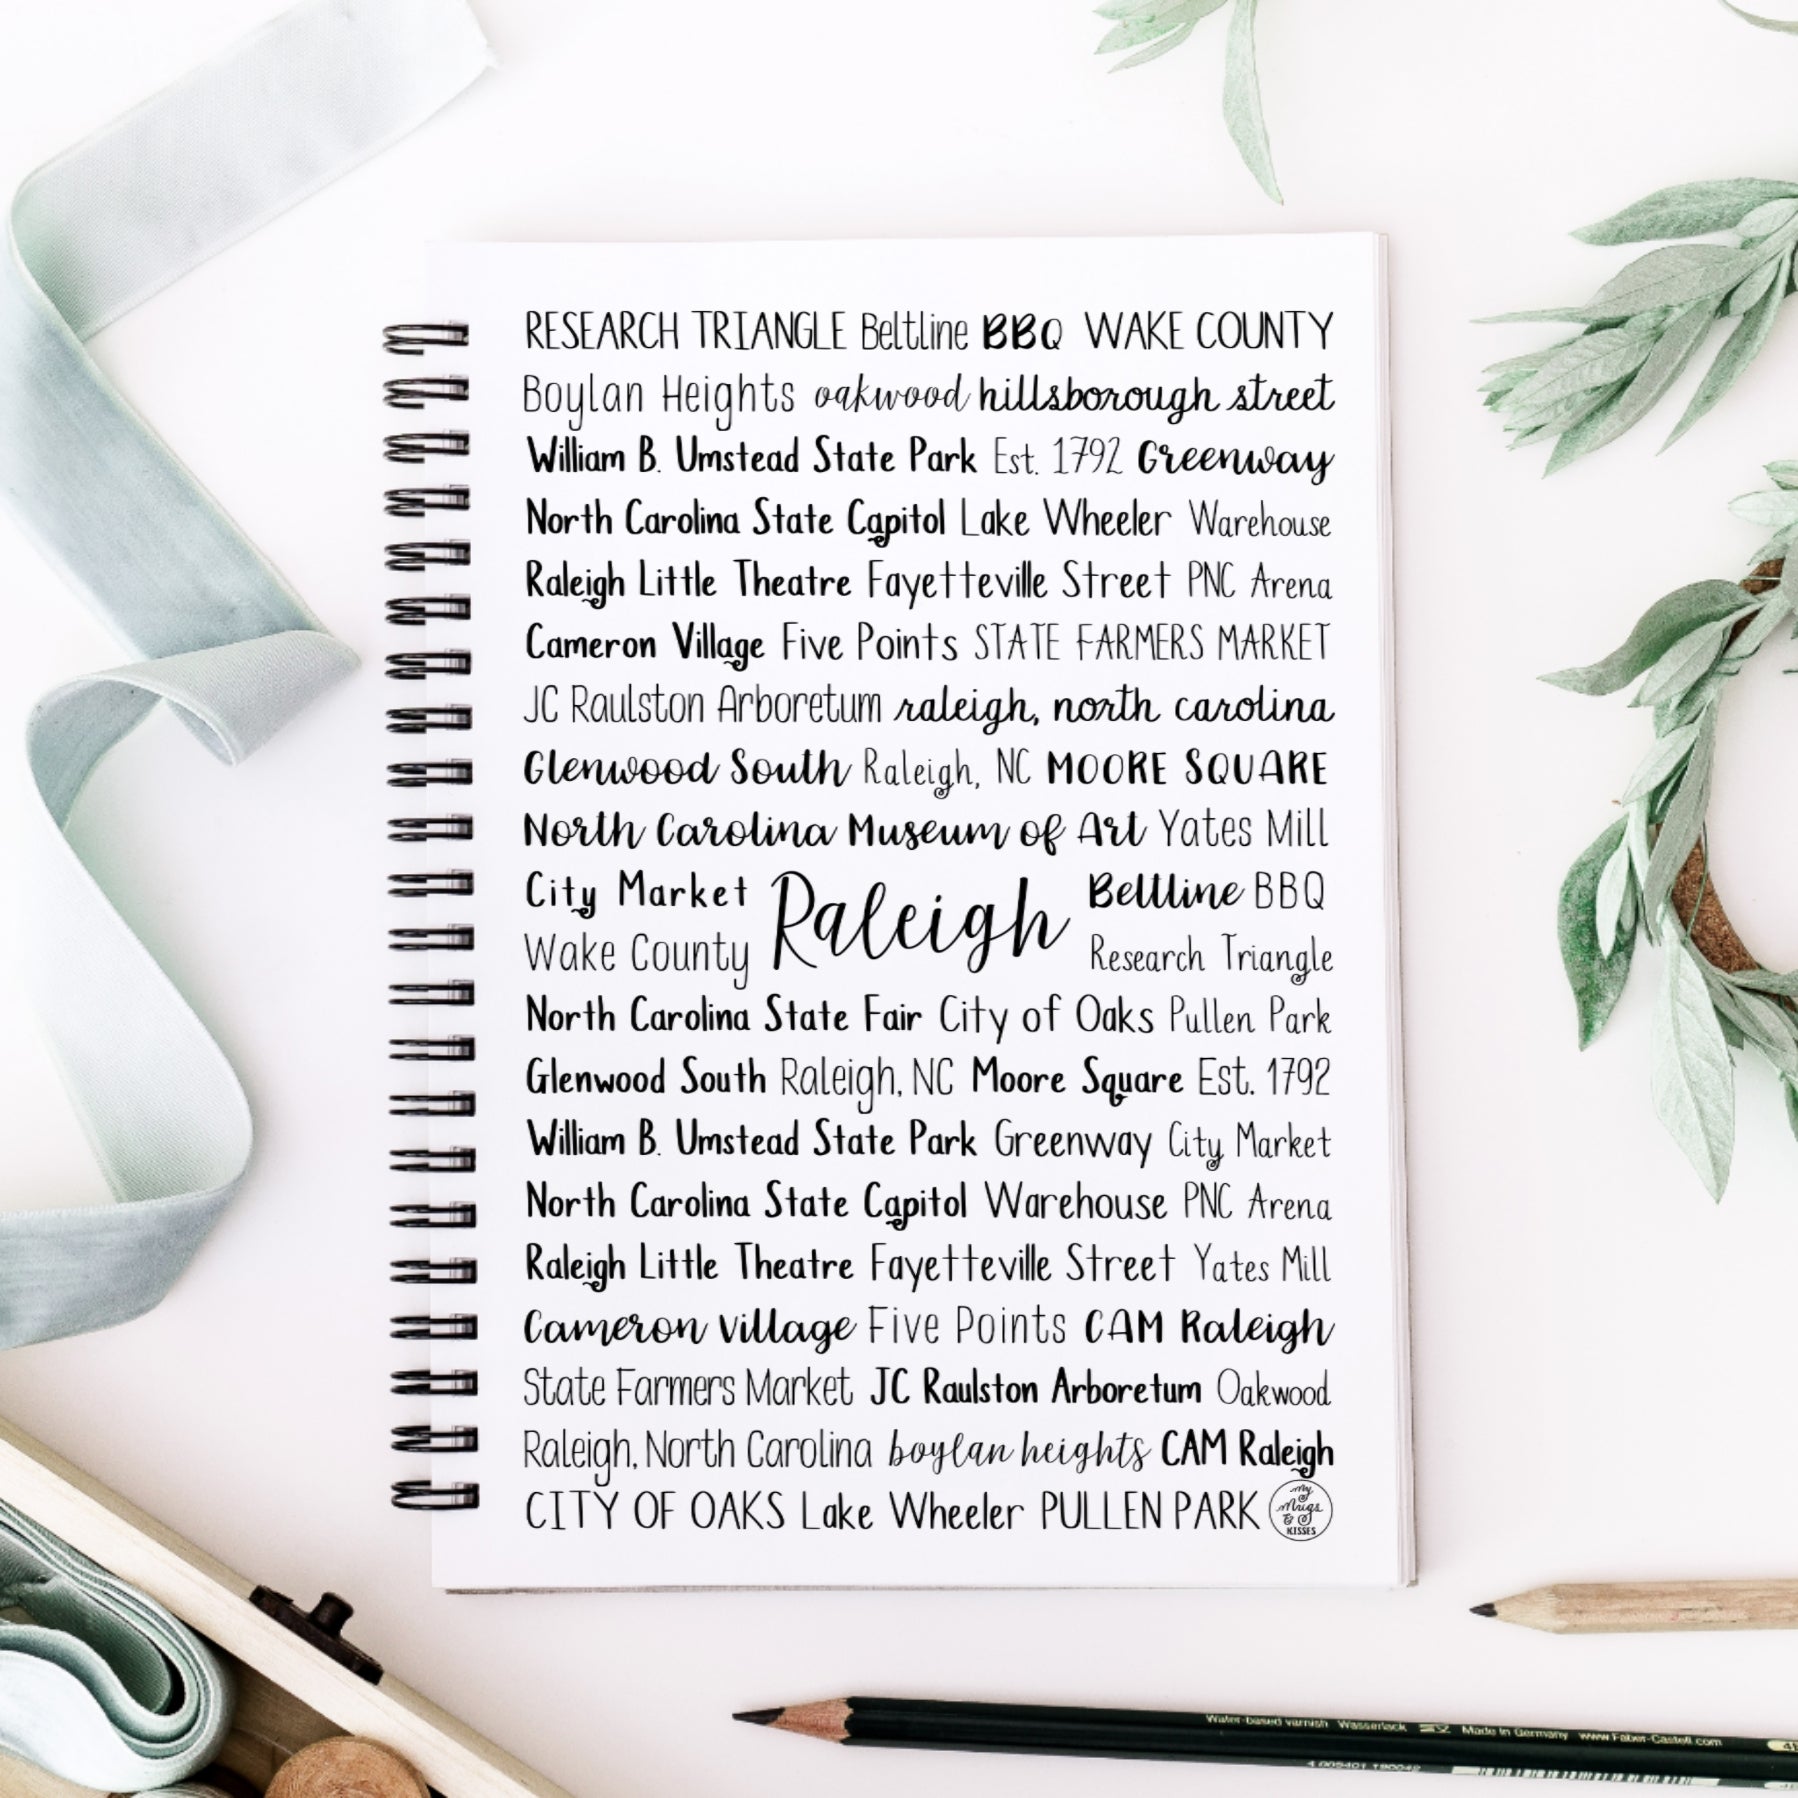 RESEARCH TRIANGLE Beltline BBQ WAKE COUNTY
Boylan Heights oakwood hillsborough street
William B. Umstead State Park Est. 1792 Greenway
North Carolina State Capitol Lake Wheeler Warehouse
Raleigh Little Theatre Fayetteville Street PNC Arena
Cameron Village Five Points STATE FARMERS MARKET
JC Raulston Arboretum raleigh, north carolina
Glenwood South Raleigh, NC MOORE SQUARE
North Carolina Museum of Art Yates Mill
City Market Raleigh Beltline BBQ
Wake County Research Triangle
North Carolina State Fair City of Oaks Pullen Park
Glenwood South Raleigh, NC Moore Square Est. 1792
William B. Umstead State Park Greenway City Market
North Carolina State Capitol Warehouse PNC Arena
Raleigh Little Theatre Fayetteville Street Yates Mill
Cameron Village Five Points CAM Raleigh
State Farmers Market JC Raulston Arboretum Oakwood
Raleigh, North Carolina boylan heights CAM Raleigh
CITY OF OAKS Lake Wheeler PULLEN PARK
My
Mugs
&
KISSES
Water-based varnish Wasserlack Made in Germany www.Faber-Castell.com
4 005401 190042